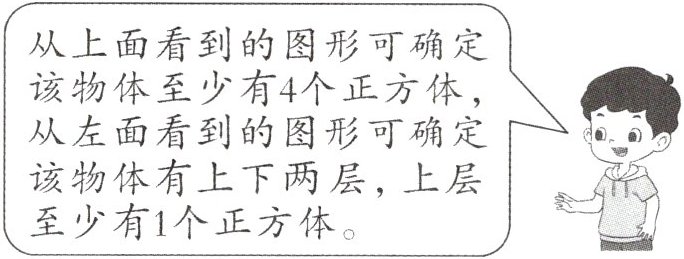 从上面看到的图形可确定
该物体至少有4个正方体，
从左面看到的图形可确定
该物体有上下两层，上层
至少有1个正方体。